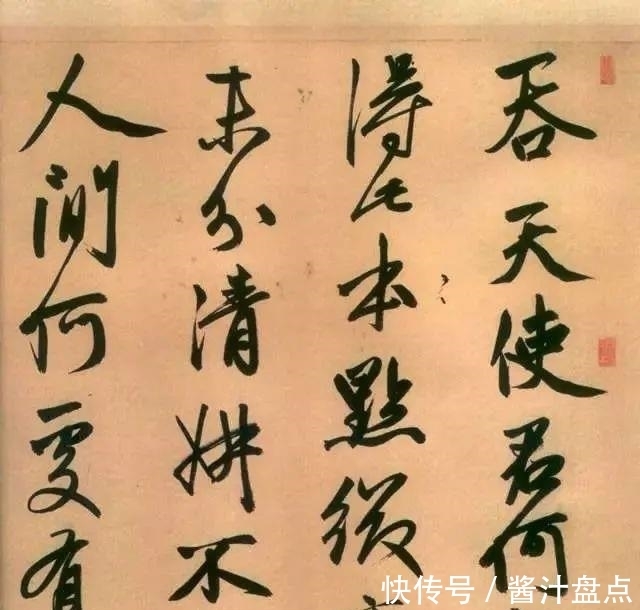 吞天使君何
得此本點綴
末分清妍不
人間何處有
快传号 / 酱汁盘点